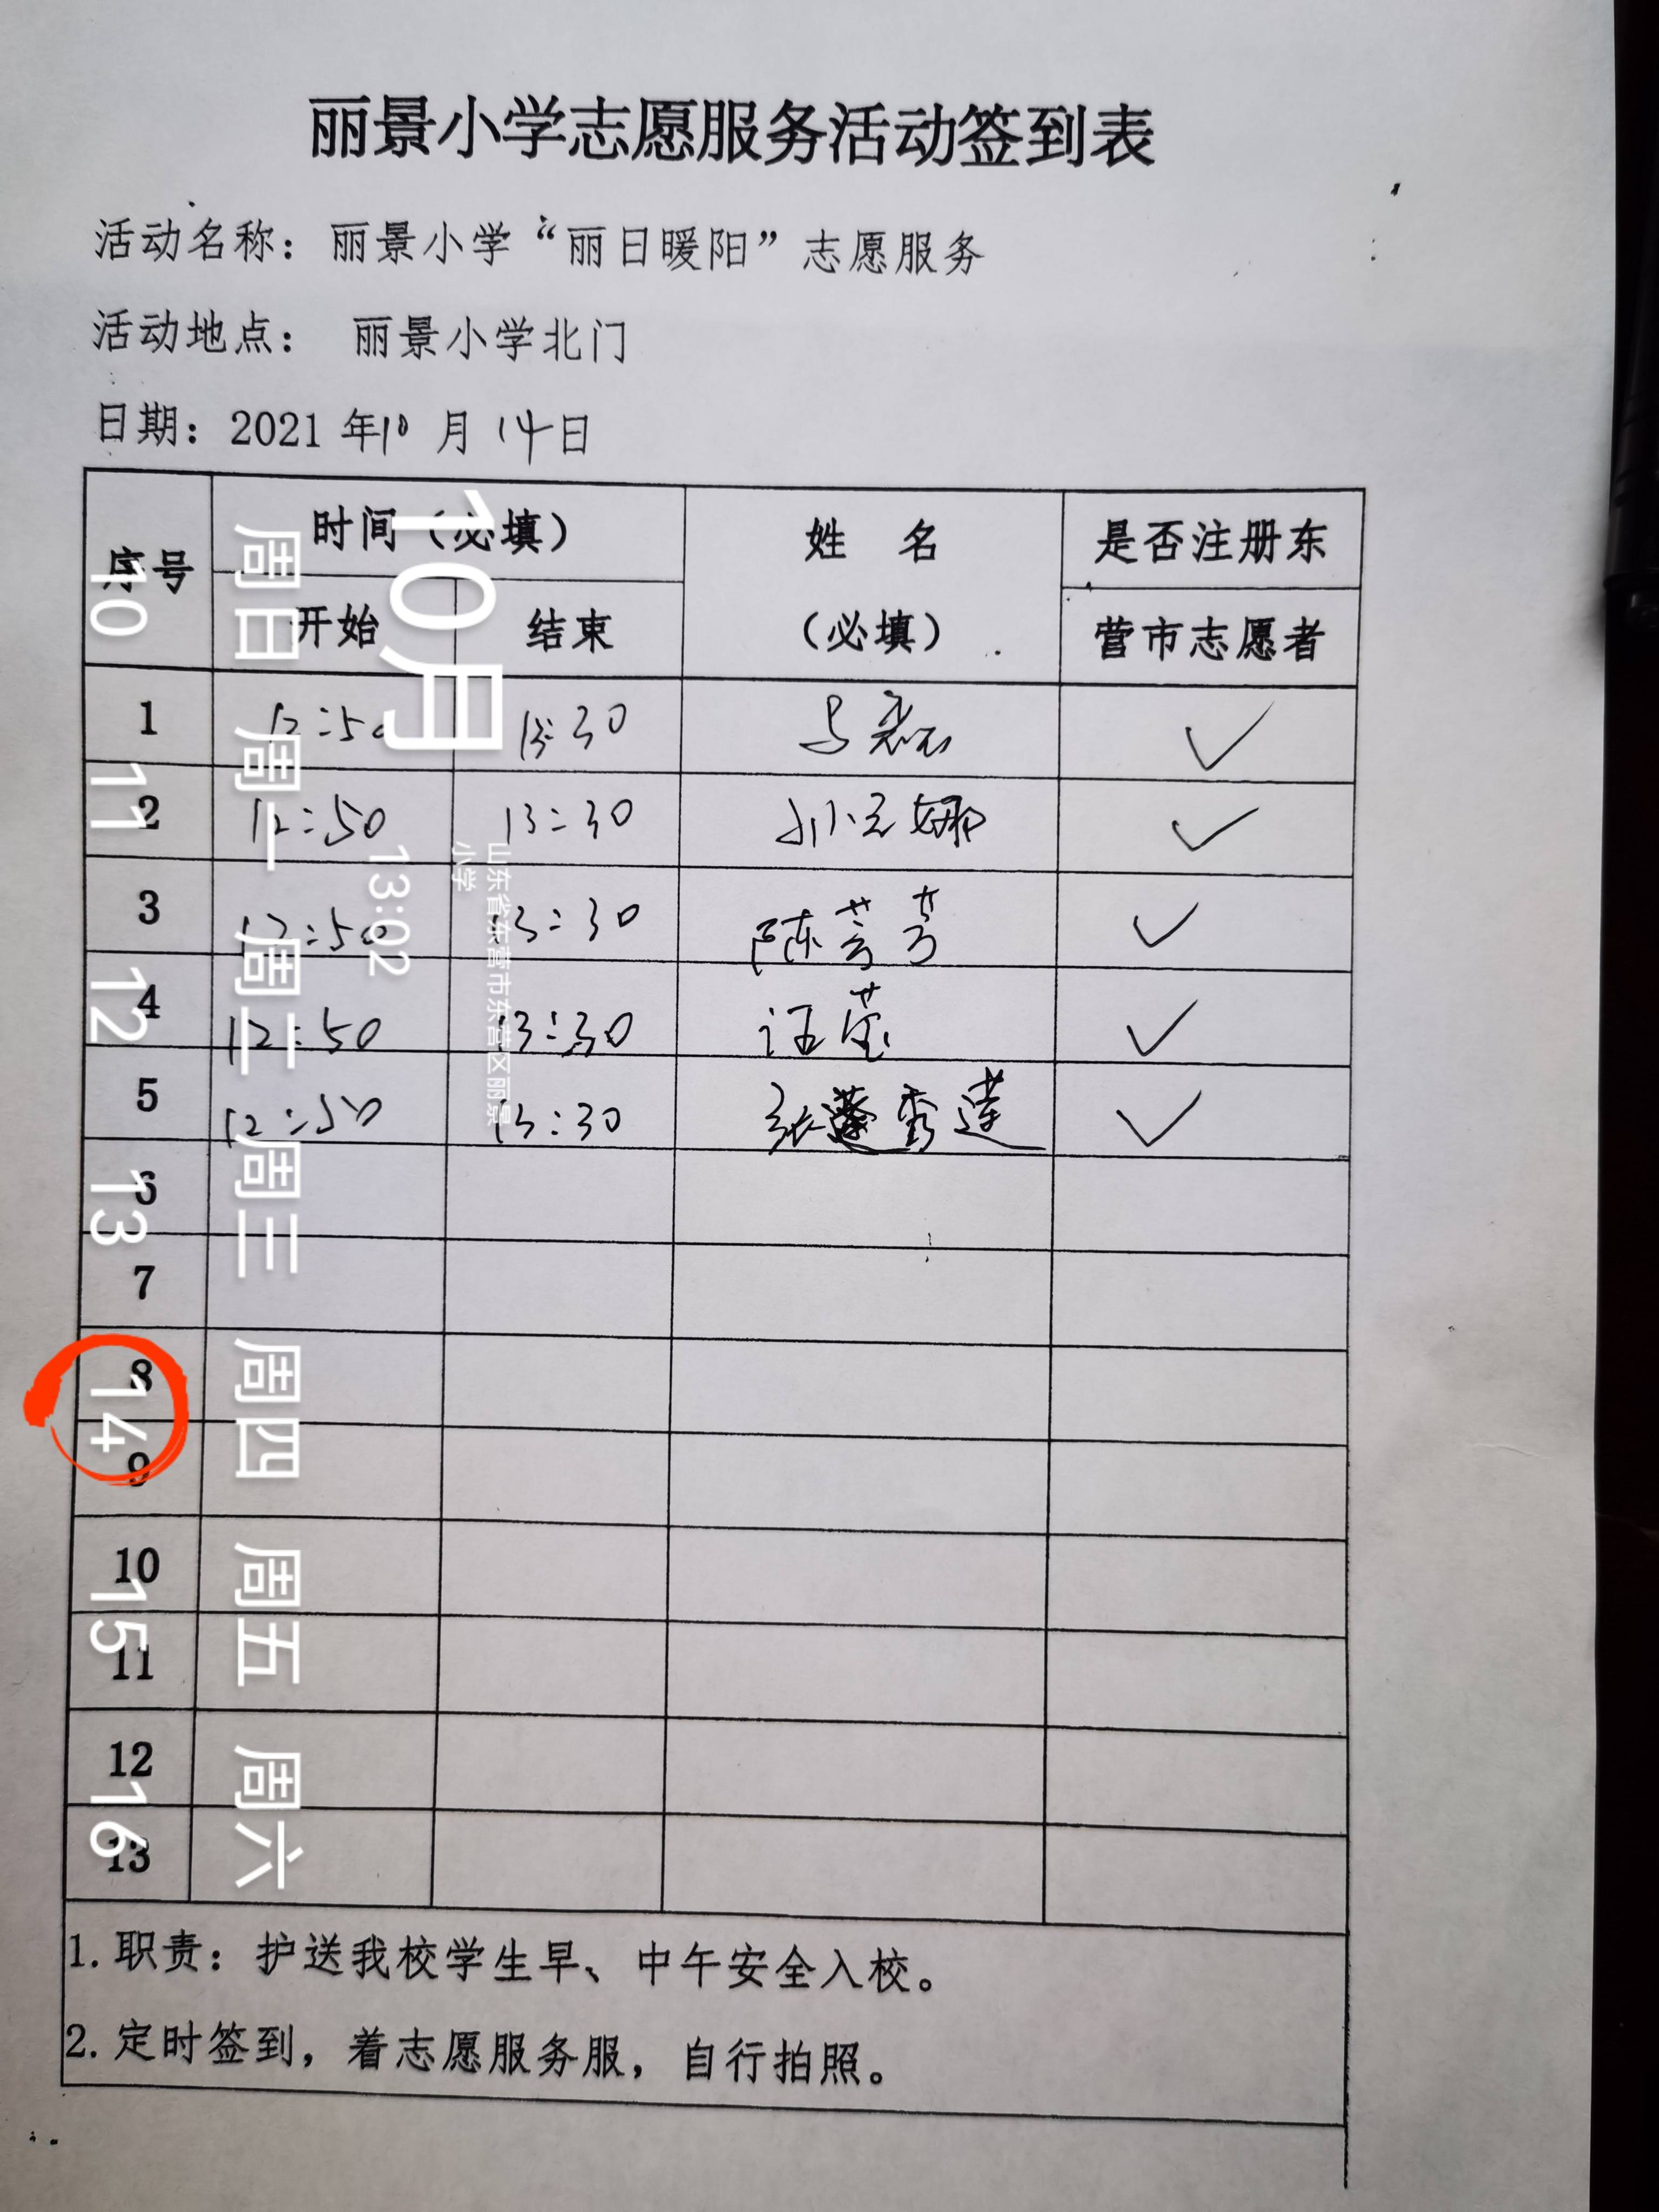 丽景小学志愿服务活动签到表
活动名称：丽景小学“丽日暖阳”志愿服务
活动地点： 丽景小学北门
日期：2021年10月14日
序号 时间（必填） 姓 名 是否注册东
开始 结束 （必填） 营市志愿者
1 12:50 13:30 ✓
2 12:50 13:30 娜 ✓
3 12:50 13:30 陈芸芳 ✓
4 12:50 13:30 汪莹 ✓
5 12:50 13:30 张秀莲 ✓
6
7
8
9
10
11
12
13
1.职责：护送我校学生早、中午安全入校。
2.定时签到，着志愿服务服，自行拍照。
10月
13:02
山东省东营市东营区丽景
小学
周日 周一 周二 周三 周四 周五 周六
10 11 12 13 14 15 16